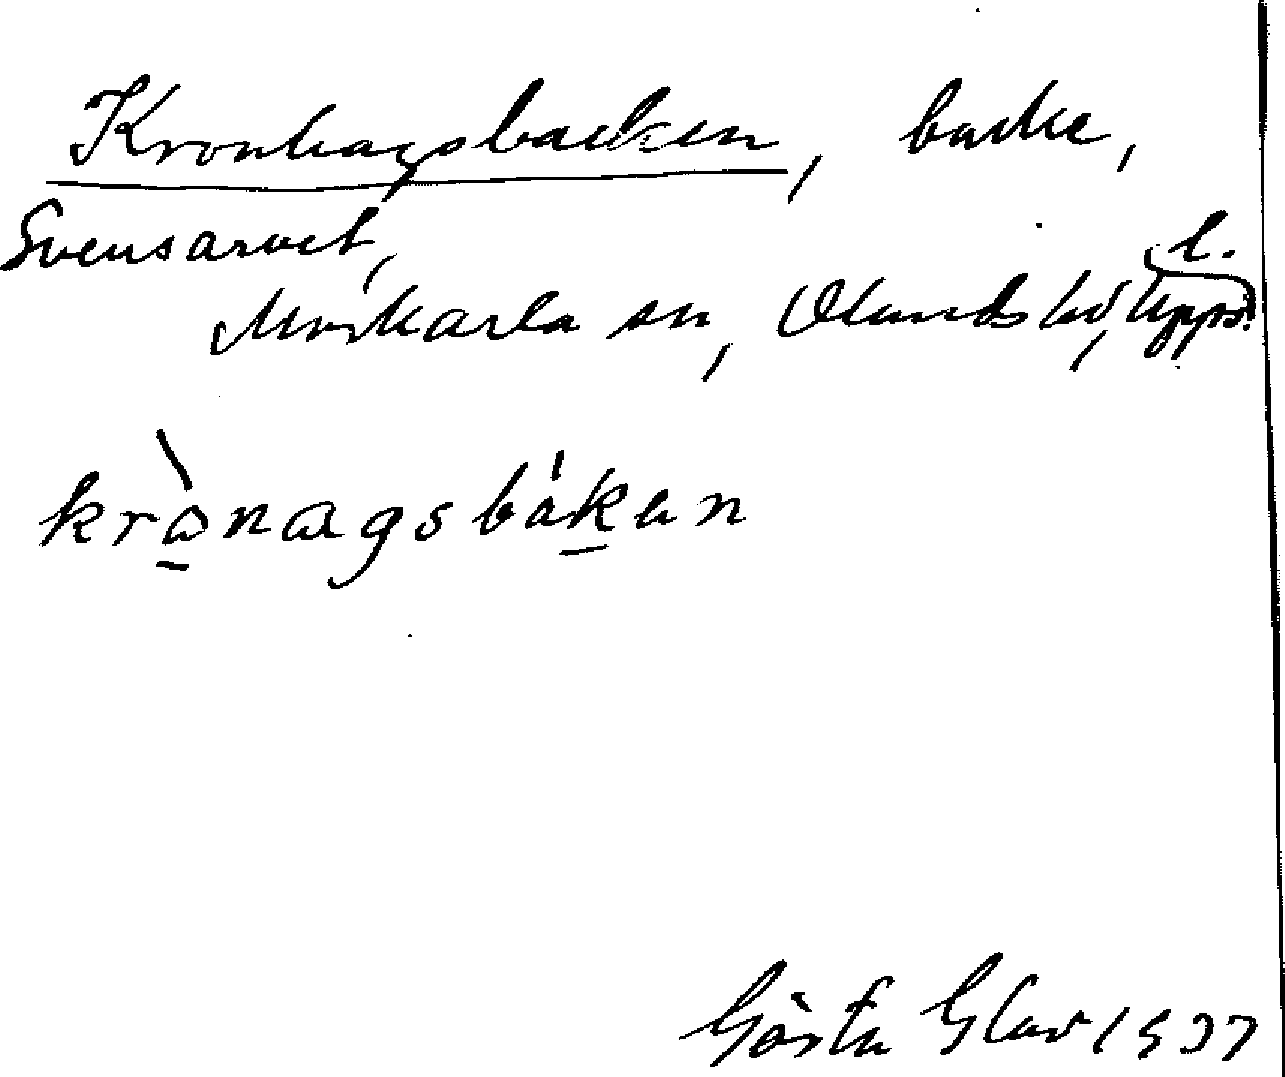 Kronhagsbacken, backe,
Svensarvet,
Morkarla sn, Olands hd, Upps. l.
krò̱nagsbáḵan
Gösta Glav 1937